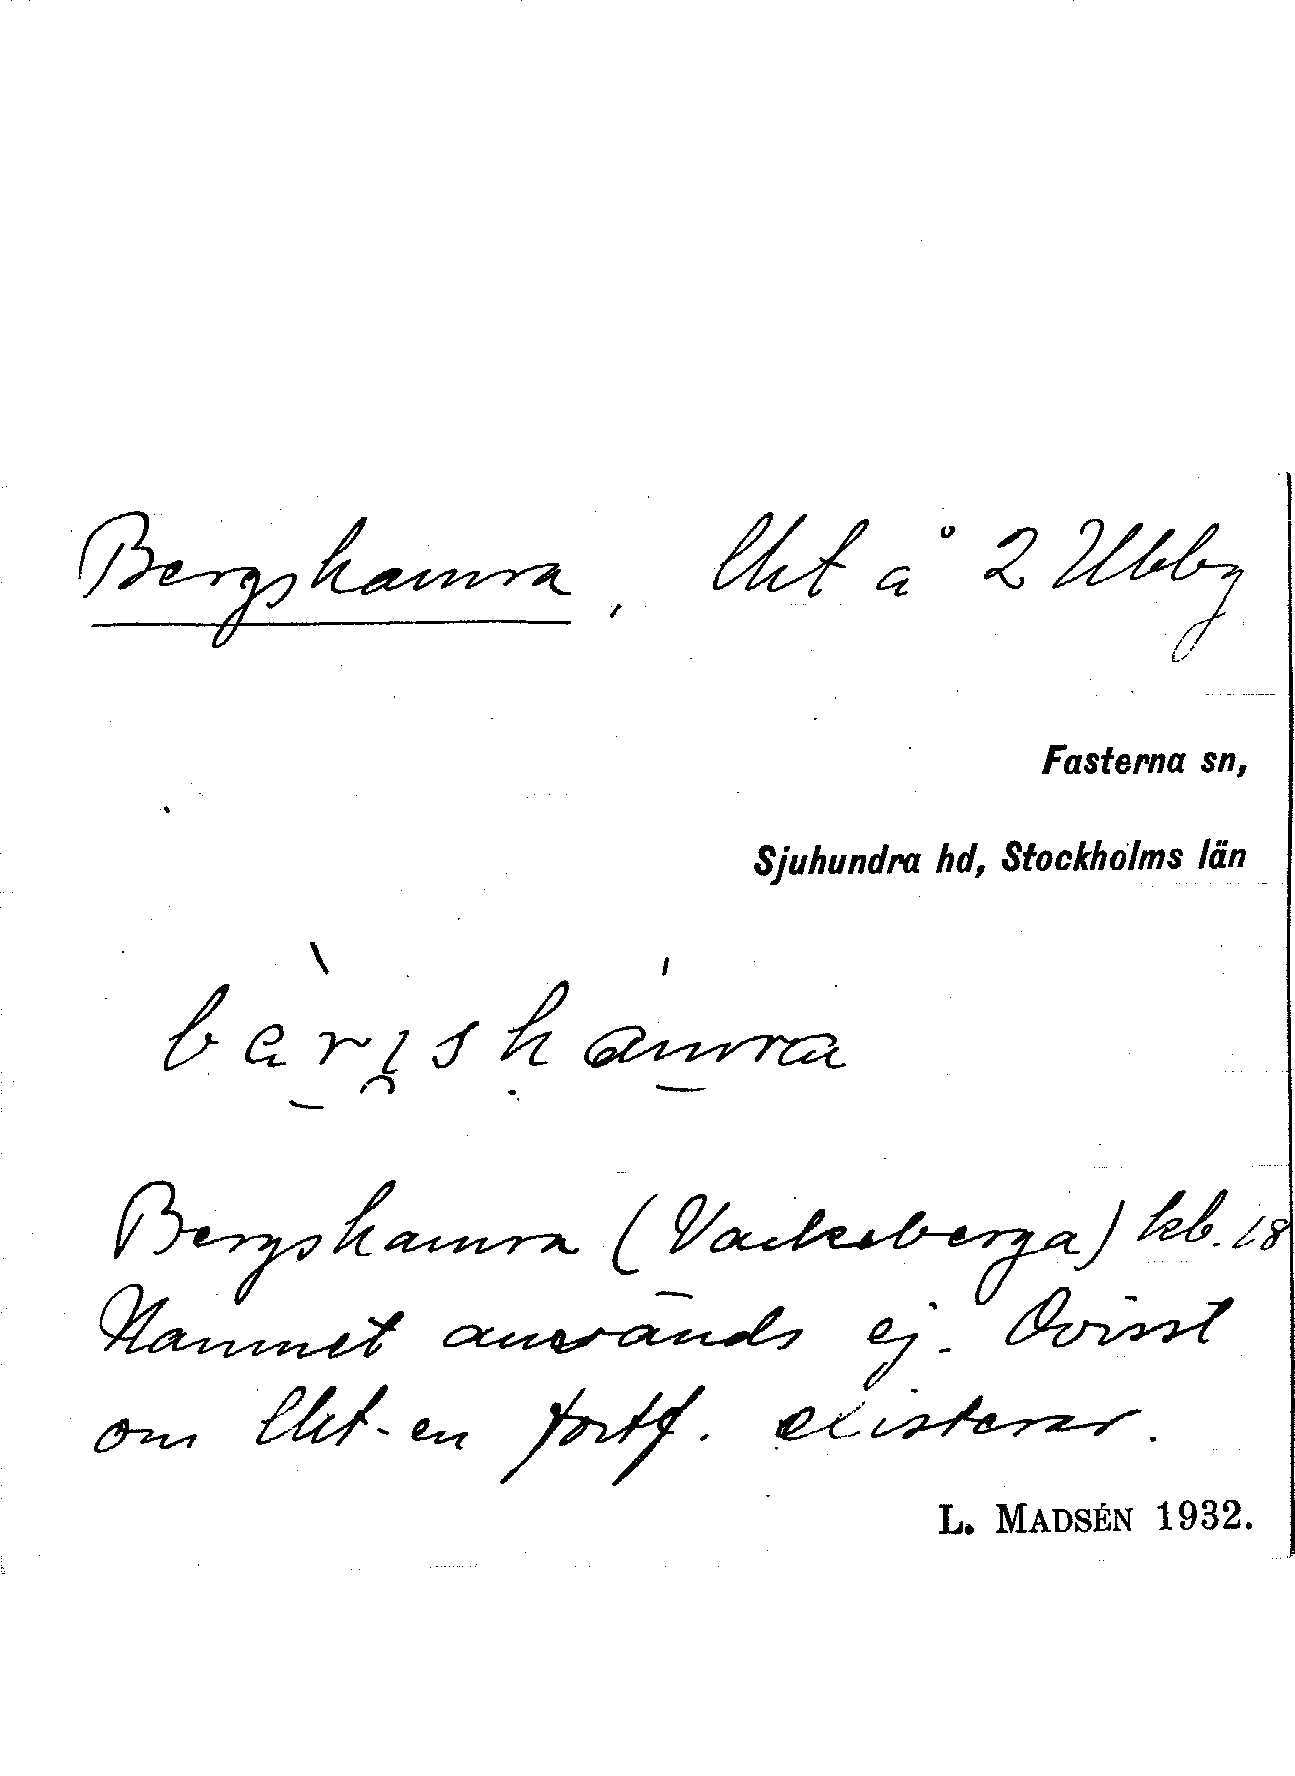 Bergshamra, lht å 2 Ubby
Fasterna sn,
Sjuhundra hd, Stockholms län
Bergshamra (Vackeberga) kb. 18
Namnet används ej. Ovisst
om lht-en fortf. existerar.
L. MADSÉN 1932.